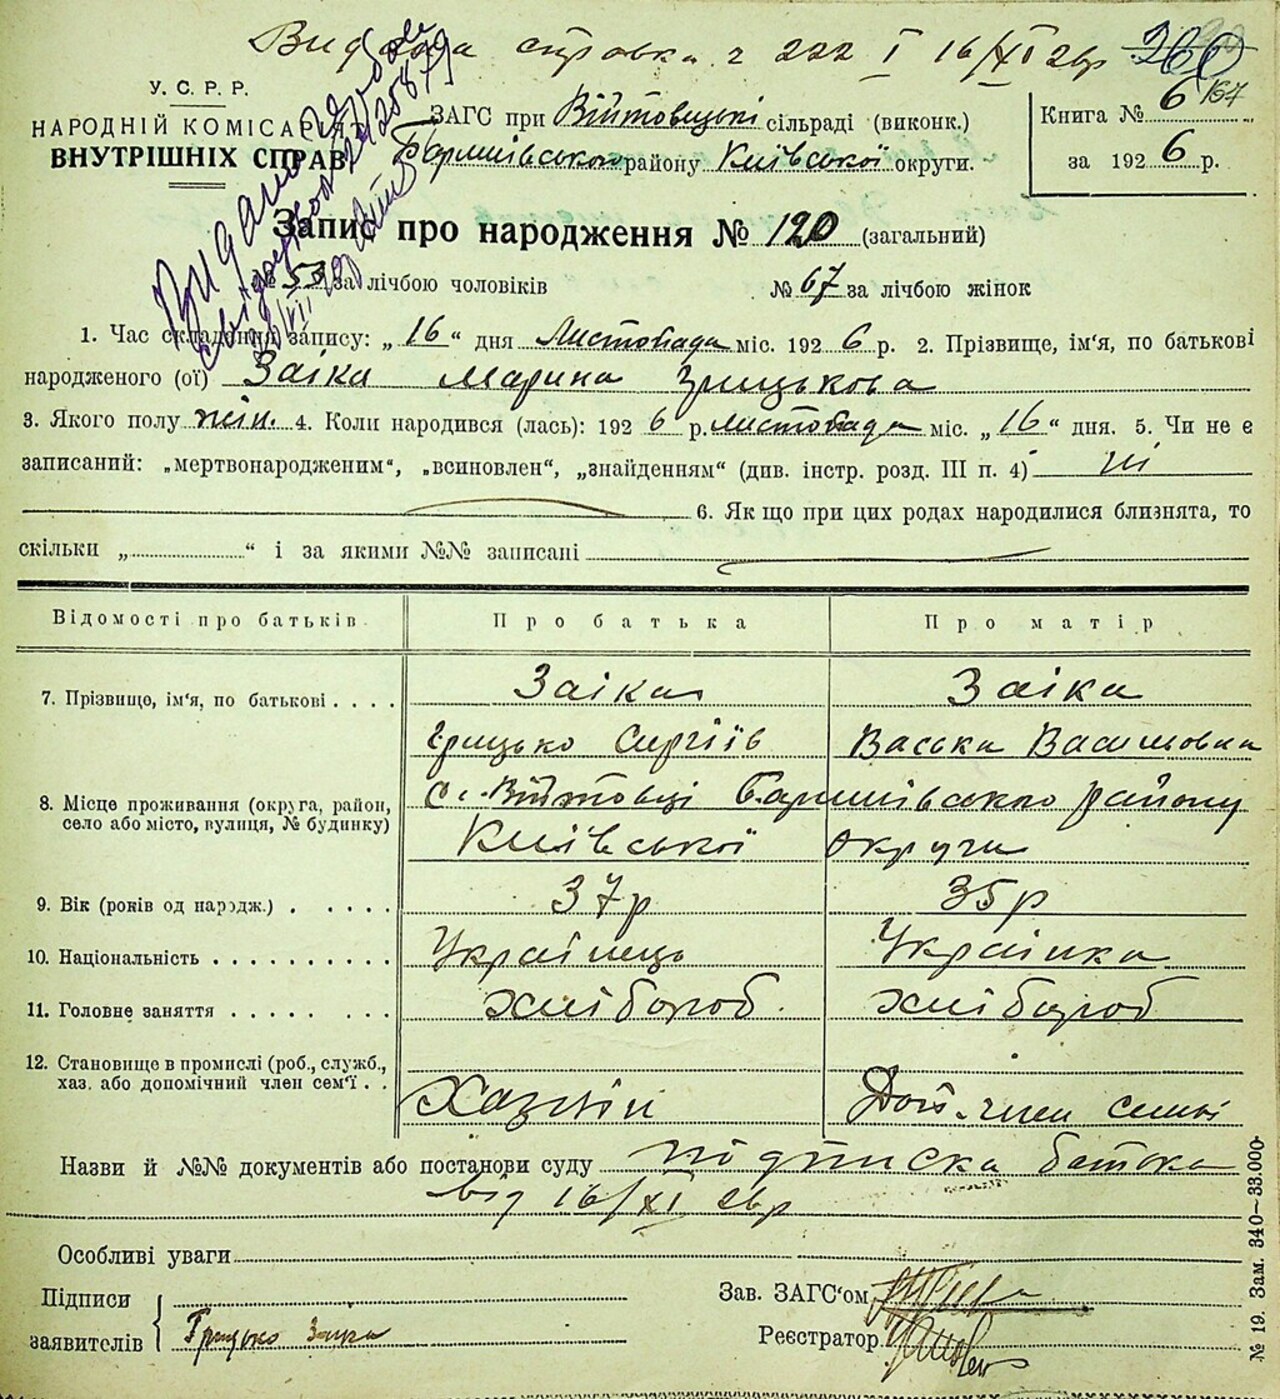 Видана справка ч 222 I 16/XI 26р 260
У. С. Р. Р.
НАРОДНІЙ КОМІСАРІЯТ
ВНУТРІШНІХ СПРАВ
ЗАГС при Війтовицькі сільраді (виконк.)
Баришівського району Київської округи.
Книга № 6 167
за 1926 р.
Видано
Запис про народження № 120 (загальний)
№ 53 за лічбою чоловіків № 67 за лічбою жінок
1. Час складення запису: „ 16 “ дня Листопада міс. 1926 р. 2. Прізвище, ім'я, по батькові
народженого (ої) Заіка Марина Грицькова
3. Якого полу жін. 4. Коли народився (лась): 1926 р. листопада міс. „ 16 “ дня. 5. Чи не є
записаний: „мертвонародженим“, „всиновлен“, „знайденням“ (див. інстр. розд. III п. 4) ні
6. Як що при цих родах народилися близнята, то
скільки „ “ і за якими №№ записані
Відомості про батьків Про батька Про матір
7. Прізвище, ім'я, по батькові Заіка Заіка
Грицько Сергіїв Васька Васильовна
8. Місце проживання (округа, район, село або місто, вулиця, № будинку) с. Війтовці Баришівського району
Київської округи
9. Вік (років од народж.) 37р 35р
10. Національність Українець Українка
11. Головне заняття хлібороб. хлібороб
12. Становище в промислі (роб., служб.,
хаз. або допомічний член сем'ї Хазяїн Доп. член семьі
Назви й №№ документів або постанови суду підписка батька
від 16/XI 26р
Особливі уваги
Підписи
заявителів Грицько Заіка
Зав. ЗАГС'ом
Реєстратор
№ 19. Зам. 340—33.000